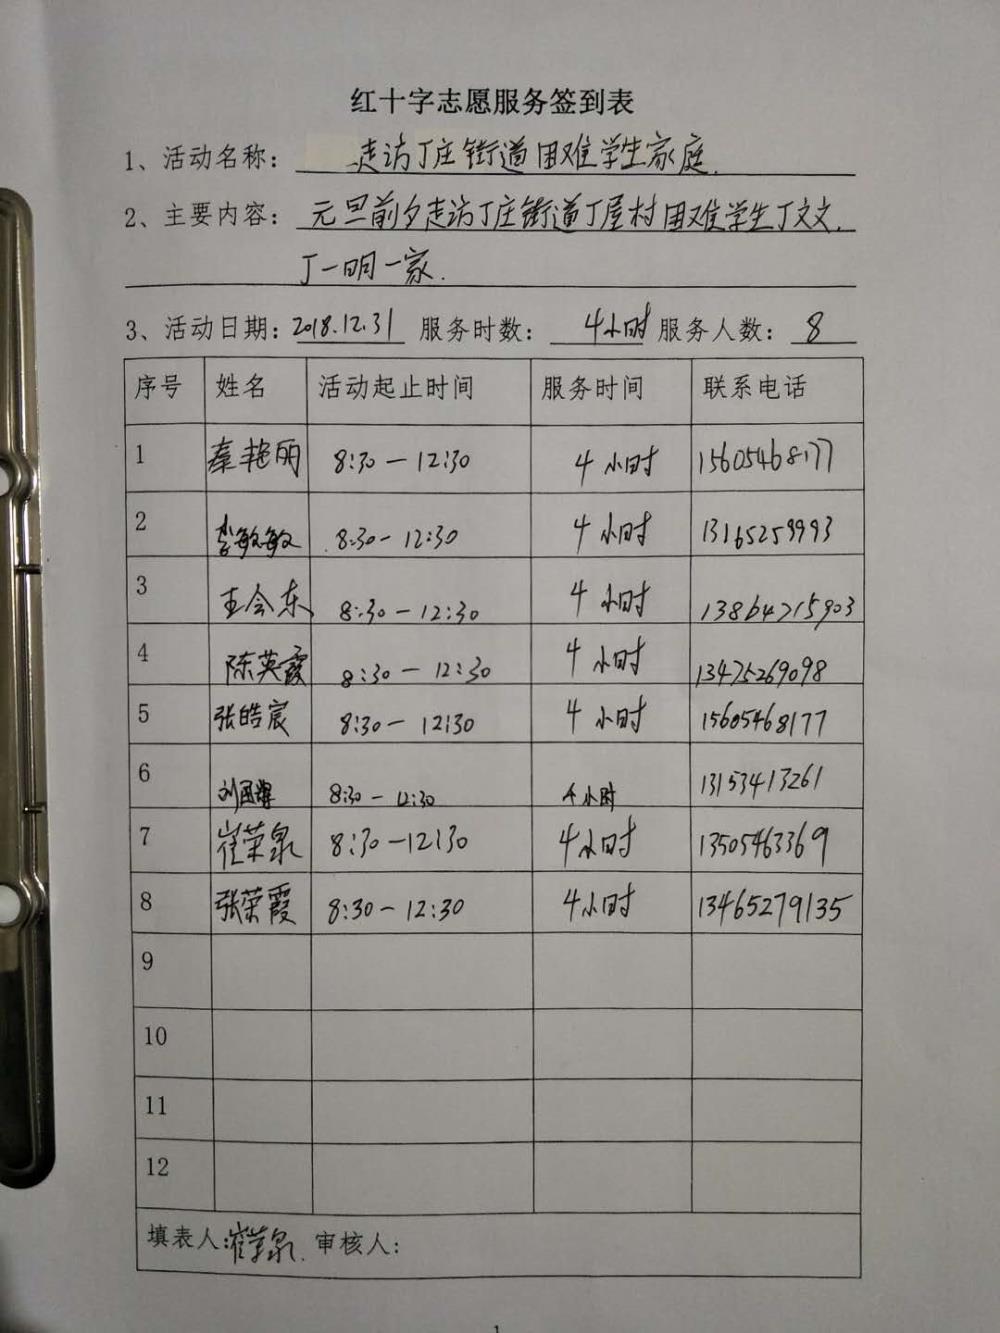 红十字志愿服务签到表
1、活动名称: 走访丁庄街道困难学生家庭.
2、主要内容: 元旦前夕走访丁庄街道丁屋村困难学生丁文文.
丁一明一家.
3、活动日期: 2018.12.31 服务时数: 4小时 服务人数: 8
序号 姓名 活动起止时间 服务时间 联系电话
1 秦艳丽 8:30-12:30 4小时 15605468177
2 李敏敏 8:30-12:30 4小时 13165259993
3 王会东 8:30-12:30 4小时 13864715903
4 陈英霞 8:30-12:30 4小时 13475269098
5 张皓宸 8:30-12:30 4小时 15605468177
6 8:30-12:30 4小时 13153413261
7 崔荣泉 8:30-12:30 4小时 13505463369
8 张荣霞 8:30-12:30 4小时 13465279135
9
10
11
12
填表人:崔荣泉. 审核人:
1